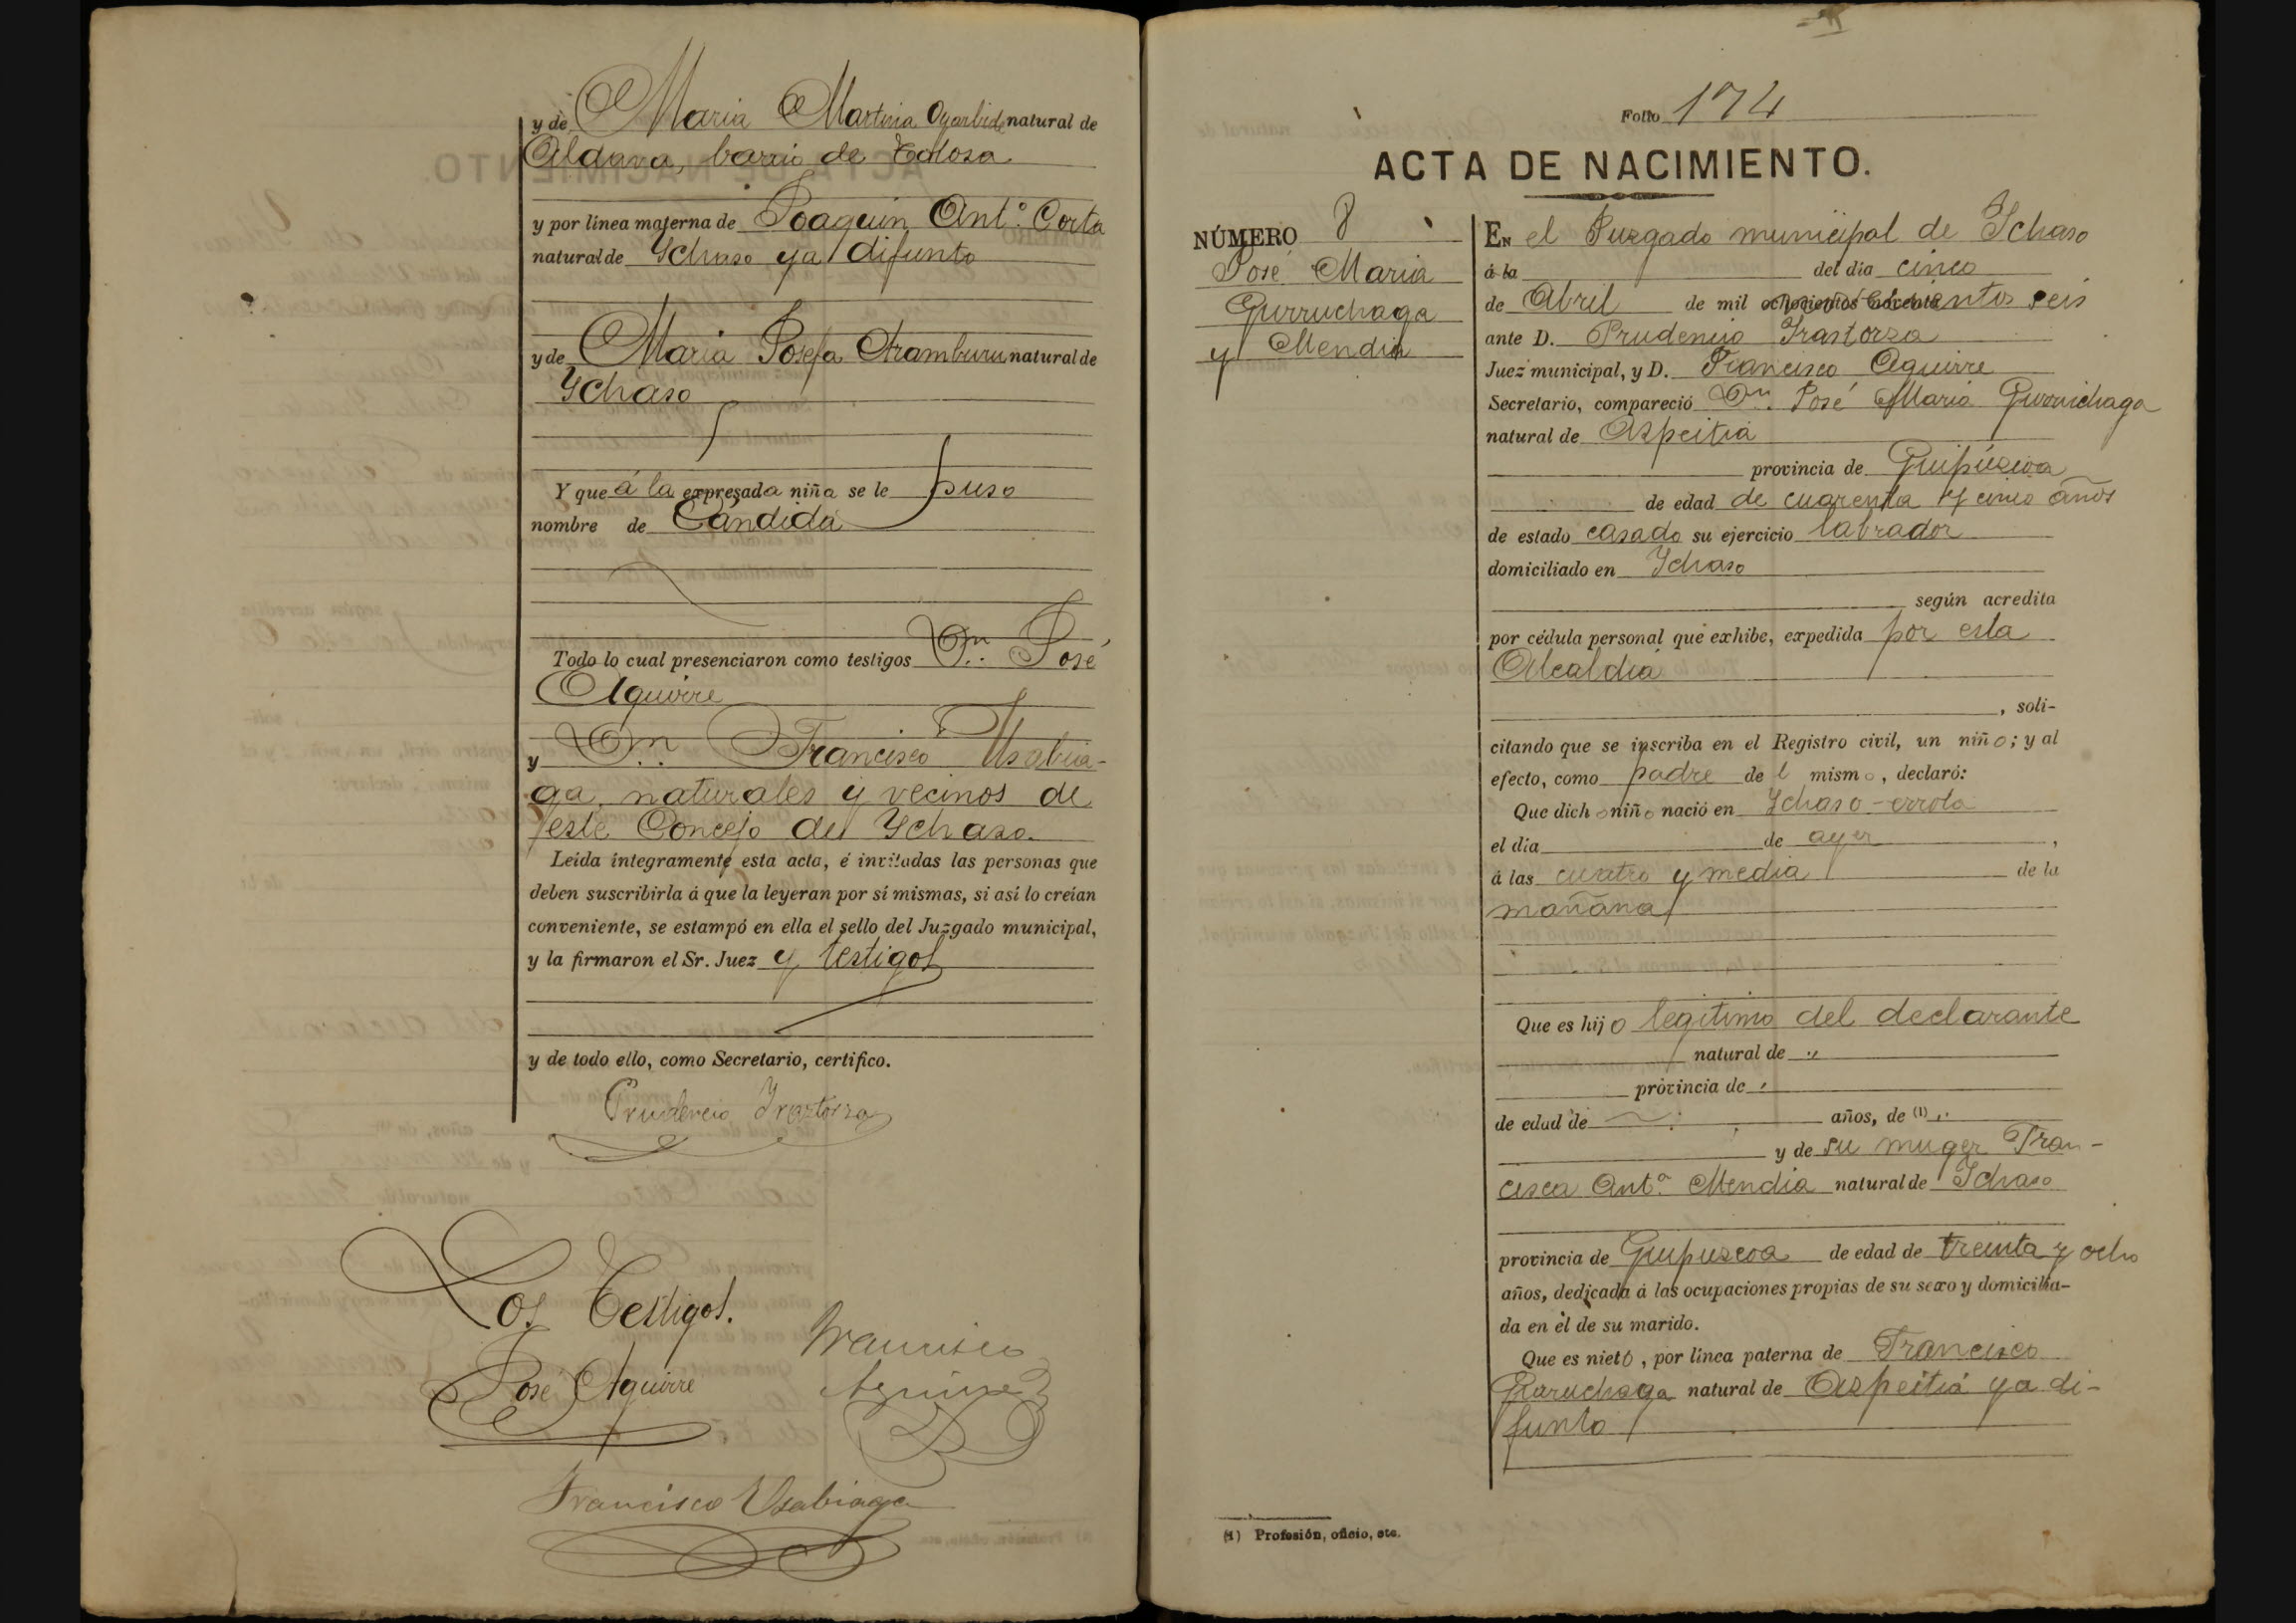 y de Maria Martina Oyarbide natural de
Aldava, barrio de Tolosa
y por línea materna de Joaquin Ant.º Corta
natural de Ychaso ya difunto
y de Maria Josefa Aramburu natural de
Ychaso
Y que á la expresada niña se le puso
nombre de Cándida
Todo lo cual presenciaron como testigos Dn. José
Aguirre
y Dn. Francisco Usabia-
ga, naturales y vecinos de
este Concejo de Ychaso.
Leída íntegramente esta acta, é invitadas las personas que
deben suscribirla á que la leyeran por sí mismas, si así lo creían
conveniente, se estampó en ella el sello del Juzgado municipal,
y la firmaron el Sr. Juez y testigos
y de todo ello, como Secretario, certifico.
Prudencio Yraztorza
Los Testigos.
Francisco
José Aguirre
Aguirre
Francisco Usabiaga
Folio 174
ACTA DE NACIMIENTO.
NÚMERO 8
José Maria
Gurruchaga
y Mendia
EN el Juzgado municipal de Ychaso
á la del día cinco
de Abril de mil novecientos seis
ante D. Prudencio Yrastorza
Juez municipal, y D. Francisco Aguirre
Secretario, compareció Dn. José Maria Gurruchaga
natural de Azpeitia
provincia de Guipúzcoa
de edad de cuarenta y cinco años
de estado casado su ejercicio labrador
domiciliado en Ychaso
según acredita
por cédula personal que exhibe, expedida por esta
Alcaldia
, soli-
citando que se inscriba en el Registro civil, un niño; y al
efecto, como padre del mismo, declaró:
Que dicho niño nació en Ychaso-errota
el día de ayer,
á las cuatro y media de la
mañana
Que es hijo legitimo del declarante
natural de "
provincia de "
de edad de años, de (1) "
y de su muger Fran-
cisca Ant.ª Mendia natural de Ychaso
provincia de Guipuzcoa de edad de treinta y ocho
años, dedicada á las ocupaciones propias de su sexo y domicilia-
da en el de su marido.
Que es nieto, por línea paterna de Francisco
Guruchaga natural de Azpeitia ya di-
funto
(1) Profesión, oficio, etc.